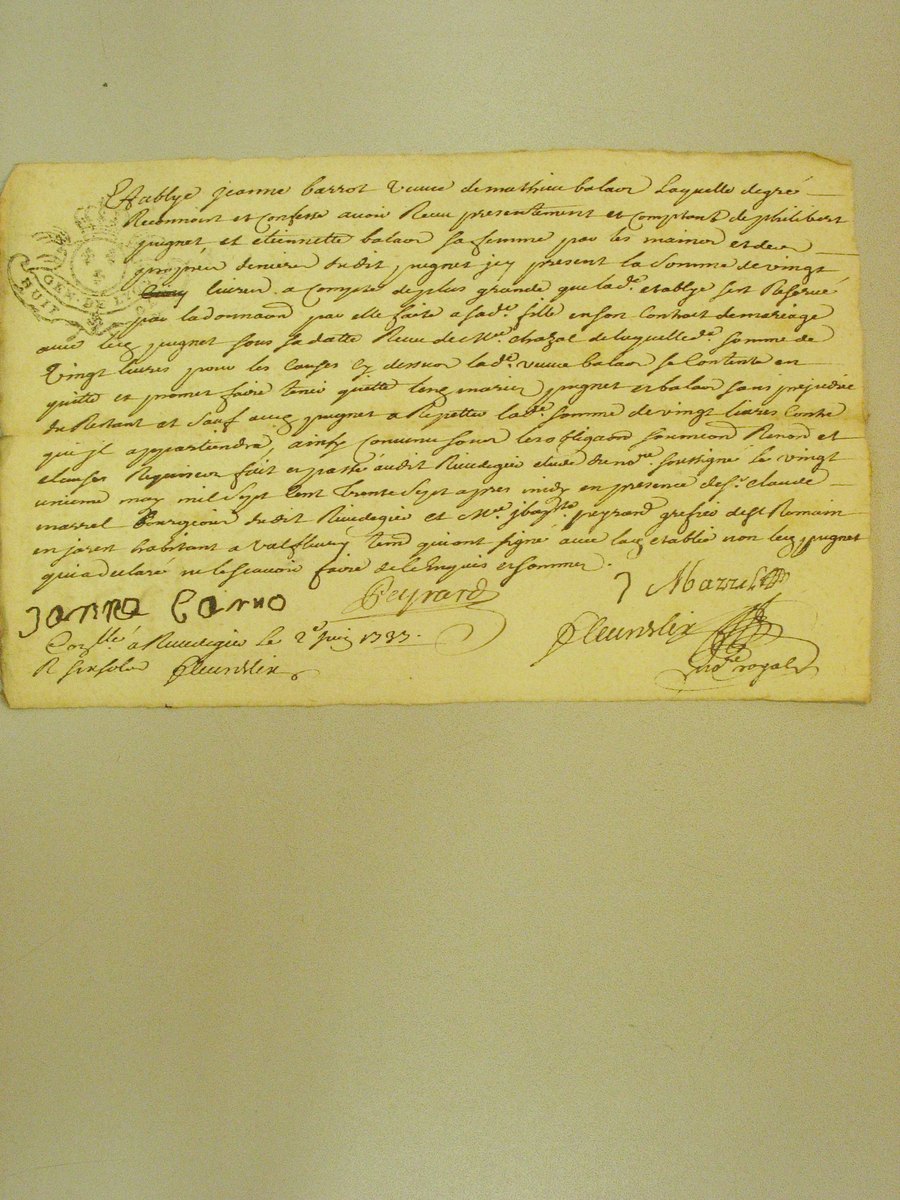 GEN. DE L
HUIT
Establye jeanne barrot veuve de mathieu balaor laquelle de gré
Reconnoit et Confesse avoir Receu presentement et Comptant de philibert
puignet, et etiennette balaor sa femme par les mainor et der
propres denierer dudit puignet jcy present la Somme de vingt
livrer a Compte de plus grande que lade. establye sest Reservé
par la donnaon par elle faite a sade. fille en son Contrat de mareage
avec puignet sous sa datte Receu de Mre. chazal de laquelle de. somme de
Vingt livres pour les causes cy dessur lade. veuve balaor se Contente en
quitte et promet faire tenir quitte mariez puignet et balaor sans prejudice
du Restant et Sauf puignet a Repetter lade. Somme de vingt livres Contre
qui jl appartiendra, ainsy Convenu sour les obligaon soumeon Renon et
clauses Requiser fait et passé audit Rivedegier etude du nore. soussigné le vingt
unieme may mil Sept Cent Trente Sept apres midy en presence de Sr. claude
marrel bourgeoir dudit Rivedegier et Mre jbapte peyrard grefier de St Romain
en jarest habitant a Valfleury temō qui ont signé avec establie non puignet
qui a declaré ne le scavoir faire de ce Enquis et sommer.
Janne Barro
Peyrard
J Marrel
Fleurdelix
nore royal
Conllé. a Rivedegier le 2e juin 1737.
R six solr Fleurdelix